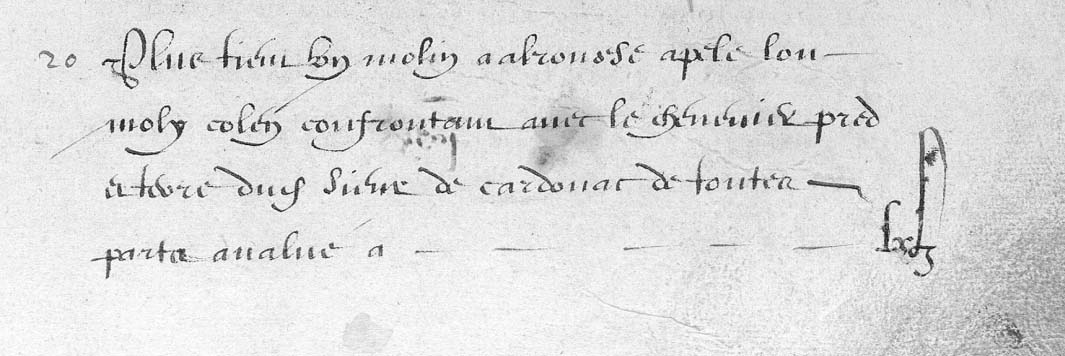 20 Plus tient ung molin aabrouose apele lou
moly colen confrontant avec le chenevier pred
et terre dud sieur de cardonac de toutes
partz avalue a